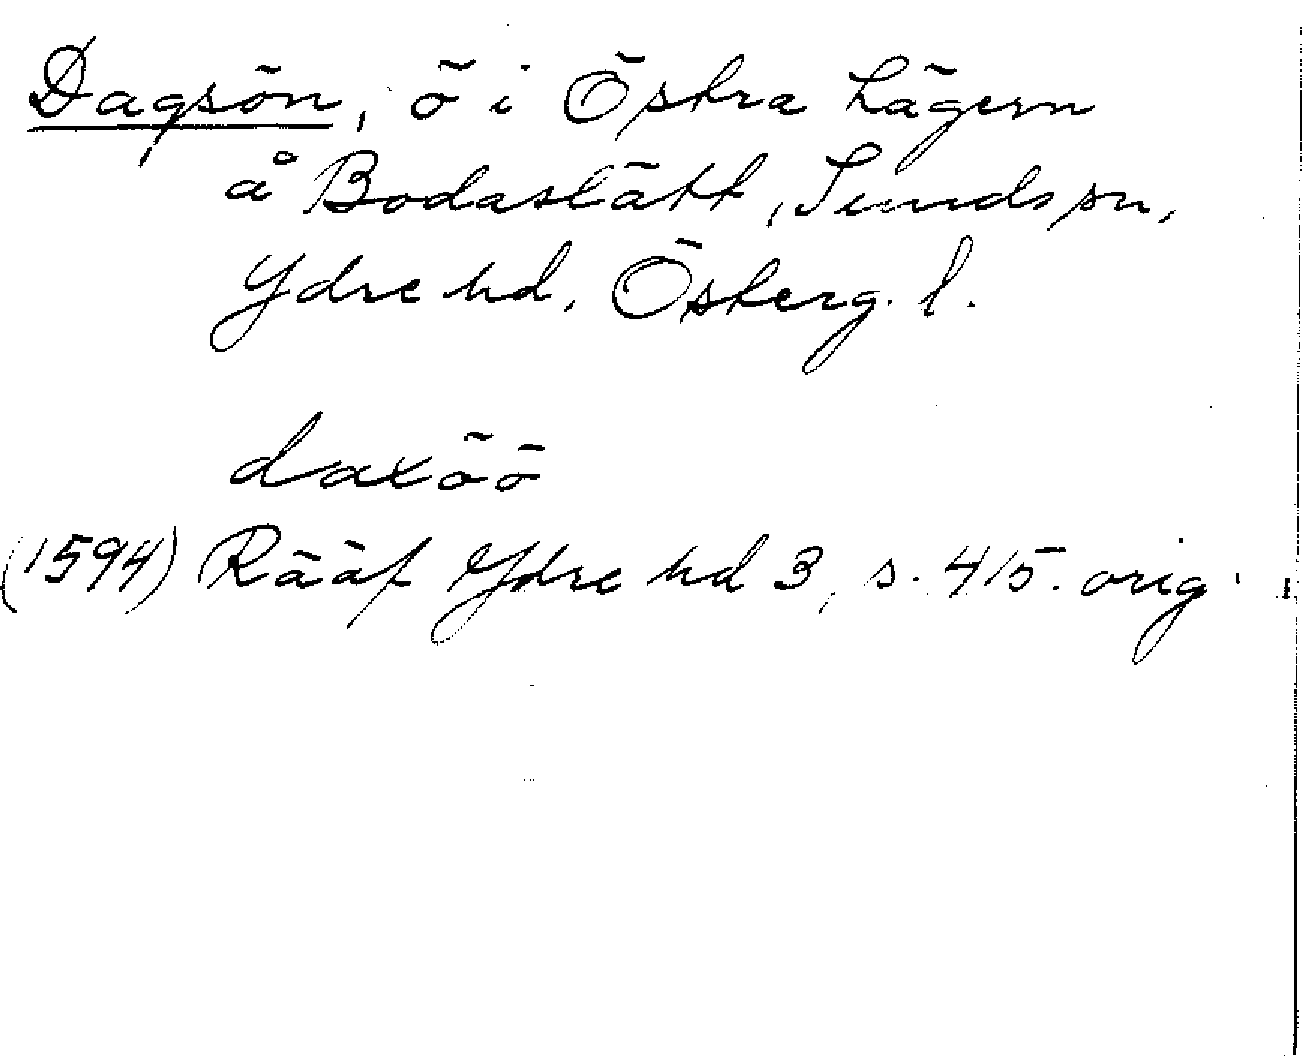 Dagsön, ö i Östra Lägern
å Bodaslätt, Sunds sn,
Ydre hd, Österg. l.
daxöö
(1594) Rääf Ydre hd 3, s. 415. orig.